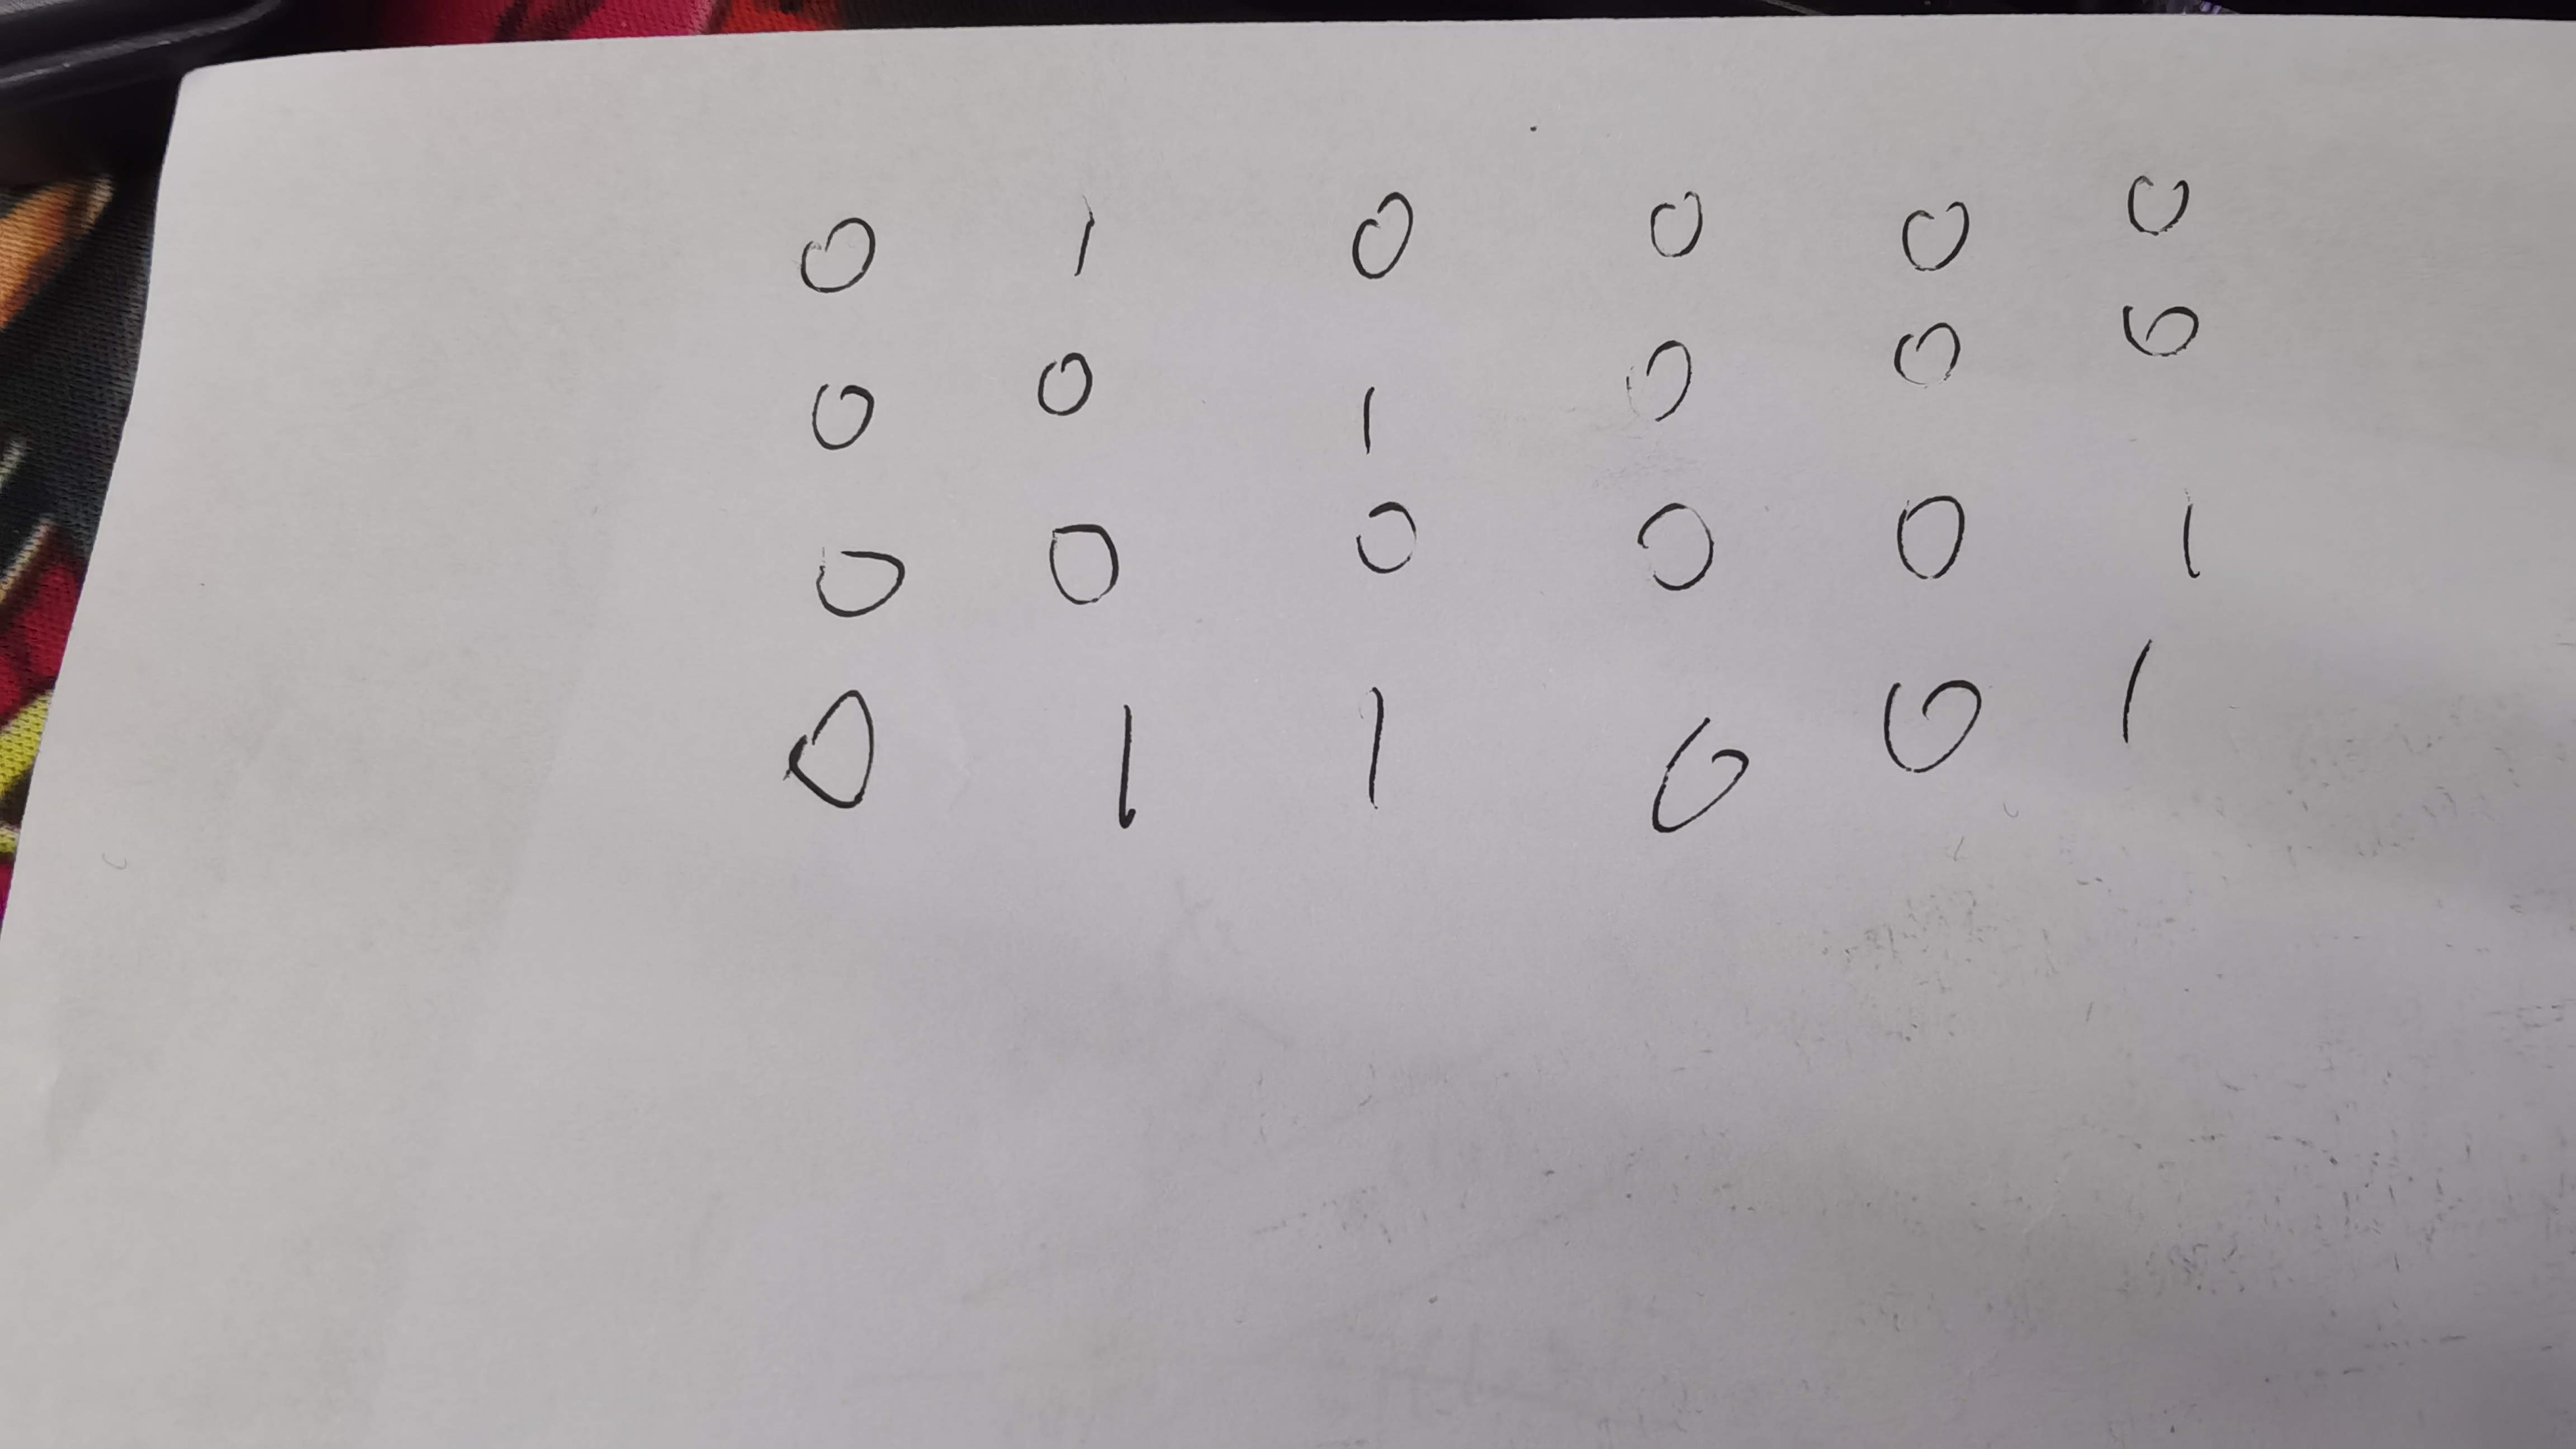 0 1 0 0 0 0
0 0 1 0 0 0
0 0 0 0 0 1
0 1 1 0 0 1